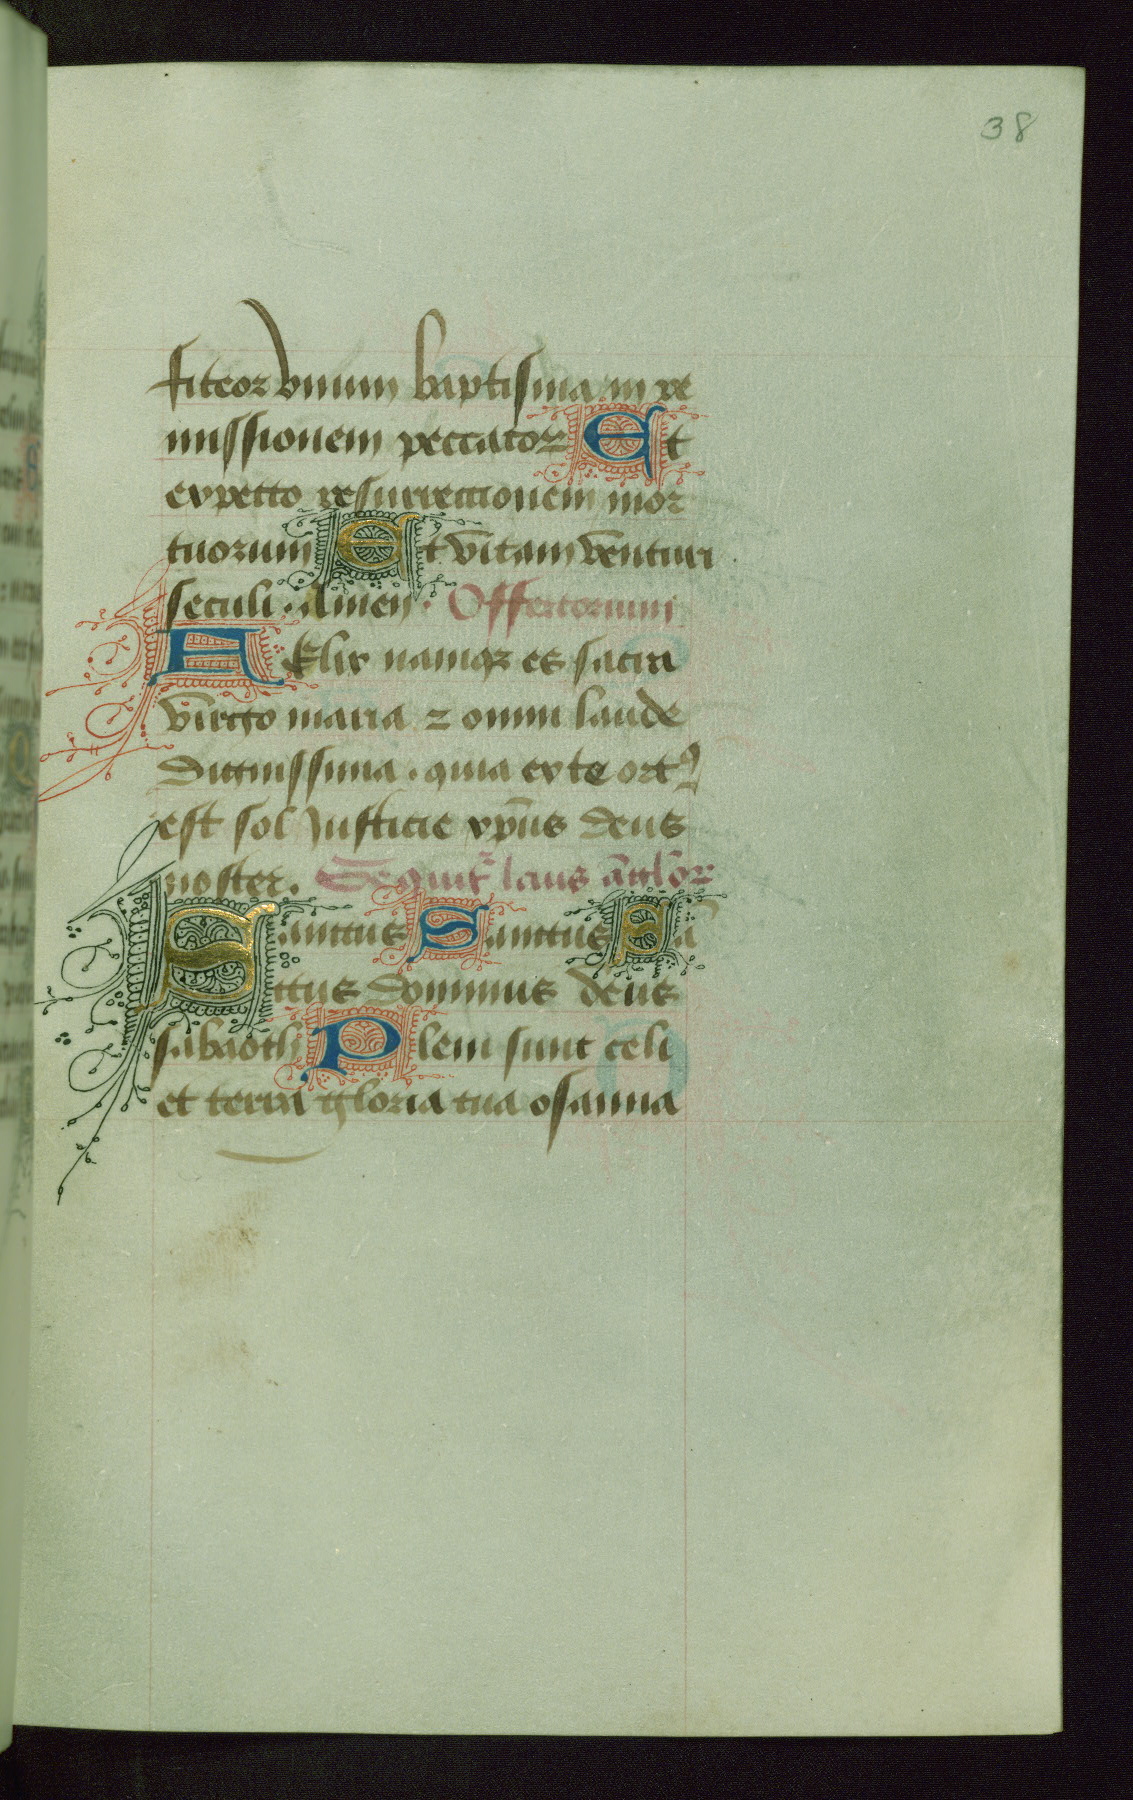 38
fiteor vnum baptisma in re
missionem peccatoꝝ Et
expecto resurrectionem mor
tuorum Et vitam venturi
seculi. Amen. Offertorium
AElix namqꝫ es sacra
virgo maria ⁊ omni laude
dignissima. quia ex te ortꝰ
est sol iusticie xp̄us deus
noster. Sequit᷑ laus āgl̄oꝝ
Sanctus Sanctus Sā
ctus dominus deus
sabaoth Pleni sunt celi
et terra gloria tua osanna